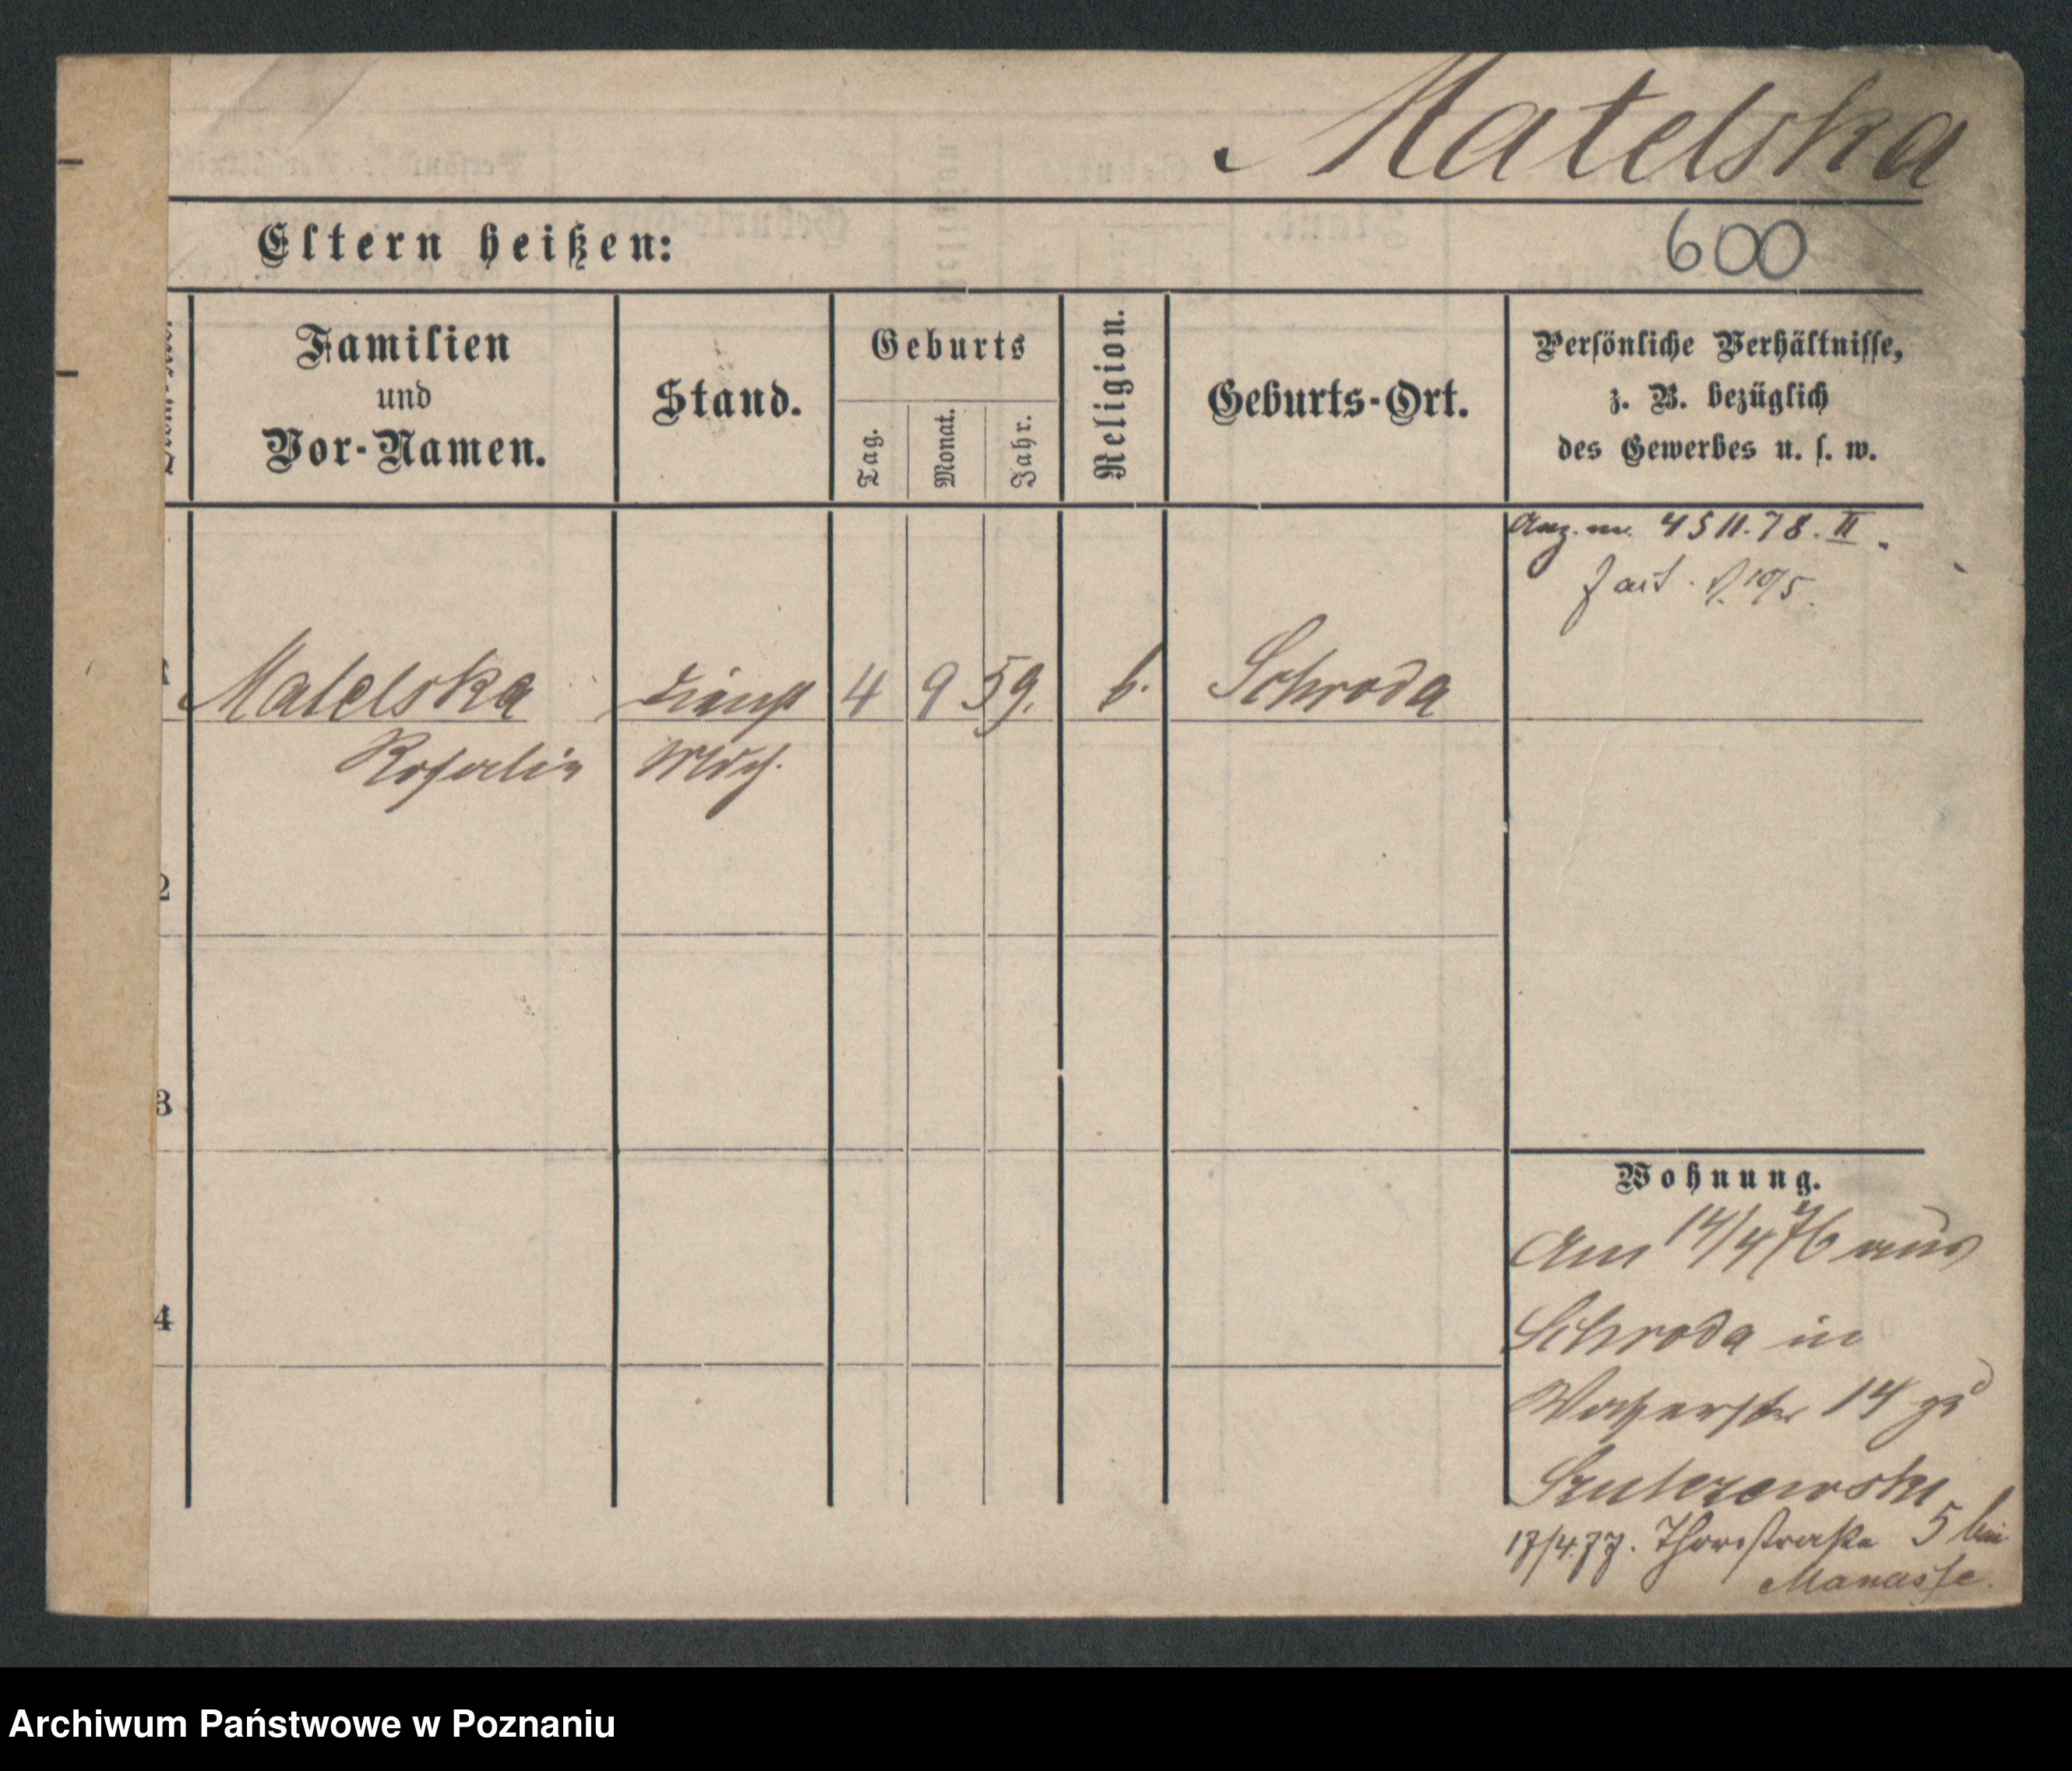 Matelska
Eltern heißen:
600
Familien
und
Vor-Namen.
Stand.
Geburts
Tag.
Monat.
Jahr.
Religion.
Geburts-Ort.
Persönliche Verhältnisse,
z. B. bezüglich
des Gewerbes u. s. w.
4511.78. II.
10/5.
Matelska
Rosalie
Dienst
Mdch.
4
9
59.
Schroda
2
3
4
Wohnung.
Am 14/4 76 aus
Schroda in
14
17/4.77. 5 bei
Manasse.
Archiwum Państwowe w Poznaniu